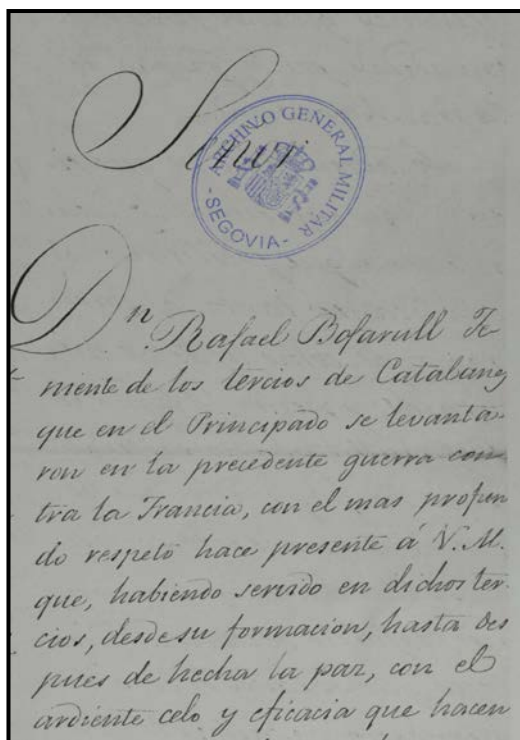 Señor
ARCHIVO GENERAL MILITAR
- SEGOVIA -
Dn Rafael Bofarull Te-
niente de los tercios de Catalanes
que en el Principado se levanta-
ron en la precedente guerra con-
tra la Francia, con el mas profun
do respeto hace presente á V.M.
que, habiendo servido en dichos ter-
cios, desde su formacion, hasta des
pues de hecha la paz, con el
ardiente celo y eficacia que hacen